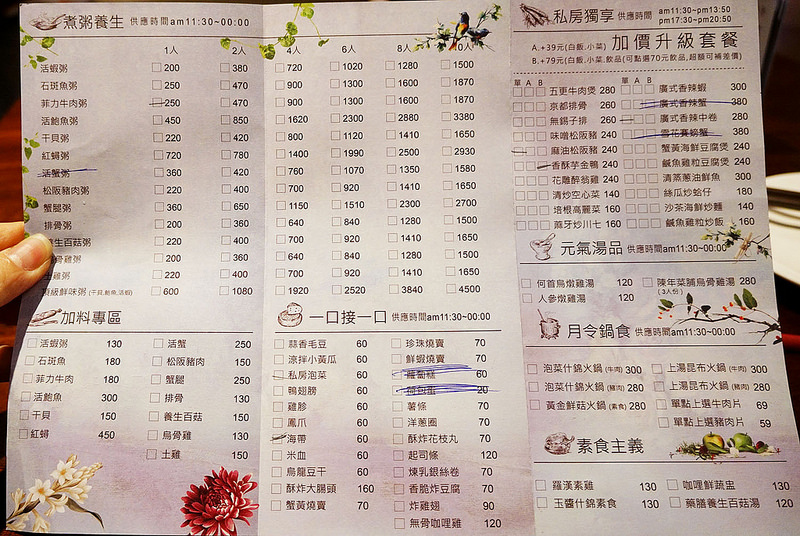 煮粥養生 供應時間 am11:30~00:00
1人 2人 4人 6人 8人 10人
活蝦粥 200 380 720 1020 1280 1500
石斑魚粥 250 470 900 1300 1600 1870
菲力牛肉粥 250 470 900 1300 1600 1870
活鮑魚粥 450 850 1620 2300 2880 3380
干貝粥 220 420 800 1120 1410 1650
紅蟳粥 720 780 1400 1990 2500 2930
活蟹粥 360 420 760 1070 1350 1580
松阪豬肉粥 220 400 700 920 1410 1650
蟹腿粥 360 650 1150 1510 2300 2700
排骨粥 200 360 640 840 1280 1500
養生百菇粥 220 400 700 920 1410 1650
骨雞粥 200 360 640 840 1280 1500
雞粥 220 400 700 920 1410 1650
頂級鮮味粥 (干貝,鮑魚,活蝦) 600 1080 1920 2520 3840 4500
加料專區
活蝦粥 130
石斑魚 180
菲力牛肉 180
活鮑魚 300
干貝 150
紅蟳 450
活蟹 250
松阪豬肉 150
蟹腿 250
排骨 130
養生百菇 150
烏骨雞 130
土雞 150
一口接一口 供應時間am11:30~00:00
蒜香毛豆 60
涼拌小黃瓜 60
私房泡菜 60
鴨翅膀 60
雞胗 60
鳳爪 60
海帶 60
米血 60
烏龍豆干 60
酥炸大腸頭 160
蟹黃燒賣 70
珍珠燒賣 70
鮮蝦燒賣 70
蘿蔔糕 60
荷包蛋 20
薯條 70
洋蔥圈 70
酥炸花枝丸 70
起司條 120
煉乳銀絲卷 70
香脆炸豆腐 70
炸雞翅 90
無骨咖哩雞 120
私房獨享 供應時間 am11:30~pm13:50
pm17:30~pm20:50
A.+39元(白飯,小菜)
B.+79元(白飯,小菜,飲品(可點選70元飲品,超額可補差價)
加價升級套餐
單 A B 單 A B
五更牛肉煲 280
京都排骨 260
無錫子排 260
味噌松阪豬 240
麻油松阪豬 240
香酥芋金鴨 240
花雕醉翁雞 240
清炒空心菜 140
培根高麗菜 160
蔴芛炒川七 140
廣式香辣蝦 300
廣式香辣蟹 380
廣式香辣中卷 280
雪花賽螃蟹 380
蟹黃海鮮豆腐煲 240
鹹魚雞粒豆腐煲 240
清蒸蔥油鮮魚 300
絲瓜炒蛤仔 180
沙茶海鮮炒麵 140
鹹魚雞粒炒飯 160
元氣湯品 供應時間am11:30~00:00
何首烏燉雞湯 120
人參燉雞湯 120
陳年菜脯烏骨雞湯 280
(3人份)
月令鍋食 供應時間am11:30~00:00
泡菜什錦火鍋 (牛肉) 300
泡菜什錦火鍋 (豬肉) 280
黃金鮮菇火鍋 (素食) 280
上湯昆布火鍋 (牛肉) 300
上湯昆布火鍋 (豬肉) 280
單點上選牛肉片 69
單點上選豬肉片 59
素食主義
羅漢素雞 130
玉醬什錦素食 130
咖哩鮮蔬盅 130
藥膳養生百菇湯 120